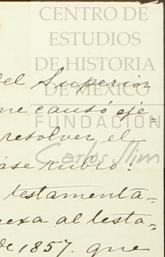 CENTRO DE
ESTUDIOS
DE HISTORIA
DE MÉXICO
FUNDACIÓN
Carlos Slim
del Superior
ue causó eje-
resolver el
ase rubio!
testamenta-
nexa al testa-
de 1857. que